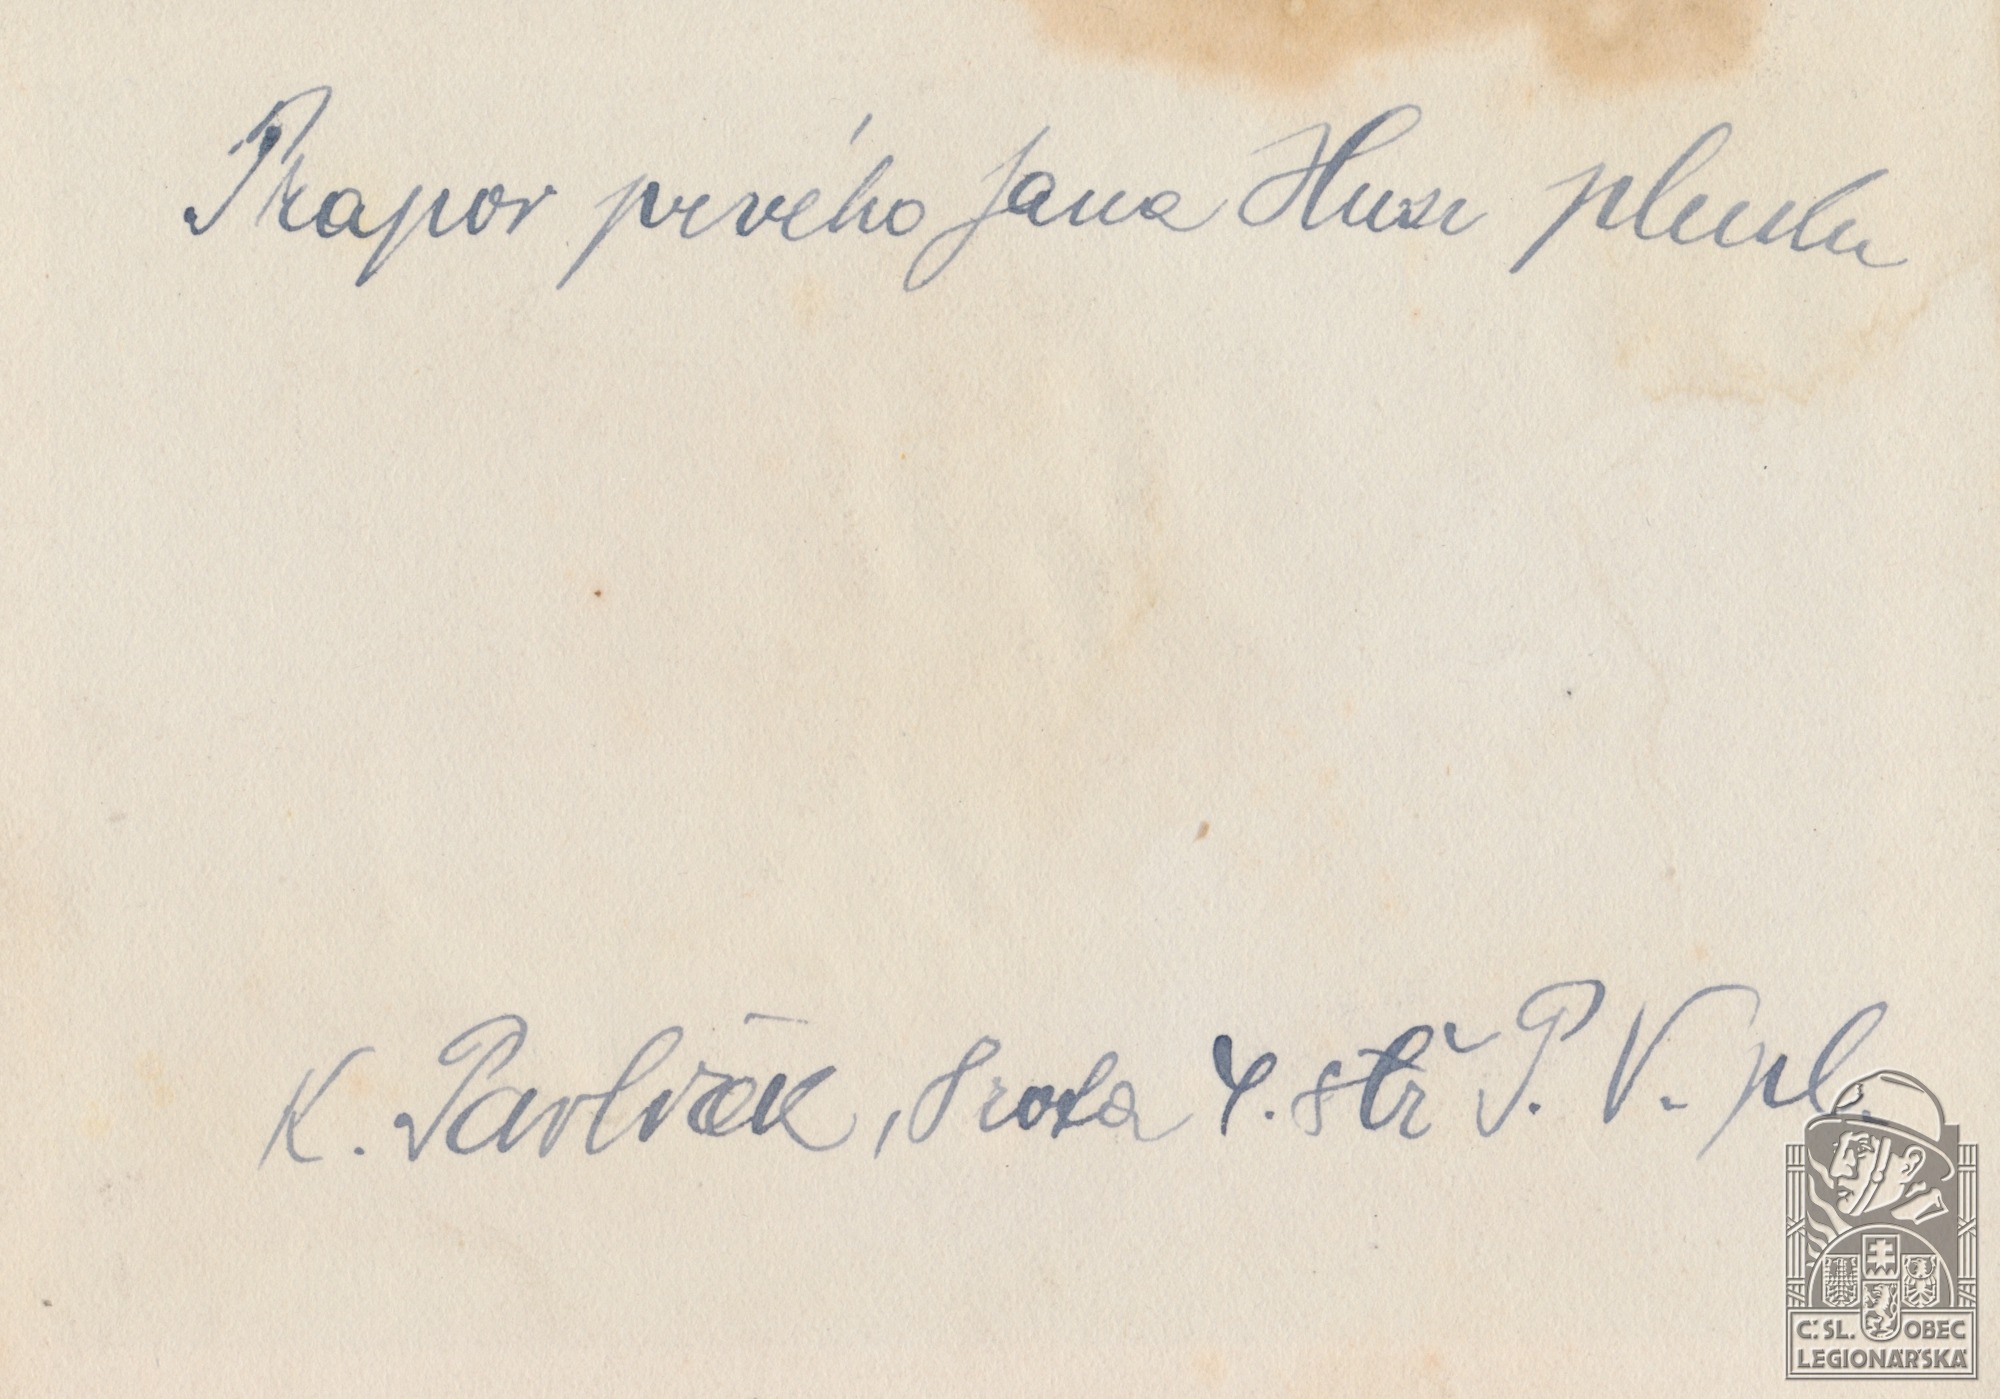 Prapor prvého Jana Husa pluku
K. Pavlíček, 8 rota 4. stř P. V. pl.
Č:SL. OBEC
LEGIONÁŘSKÁ